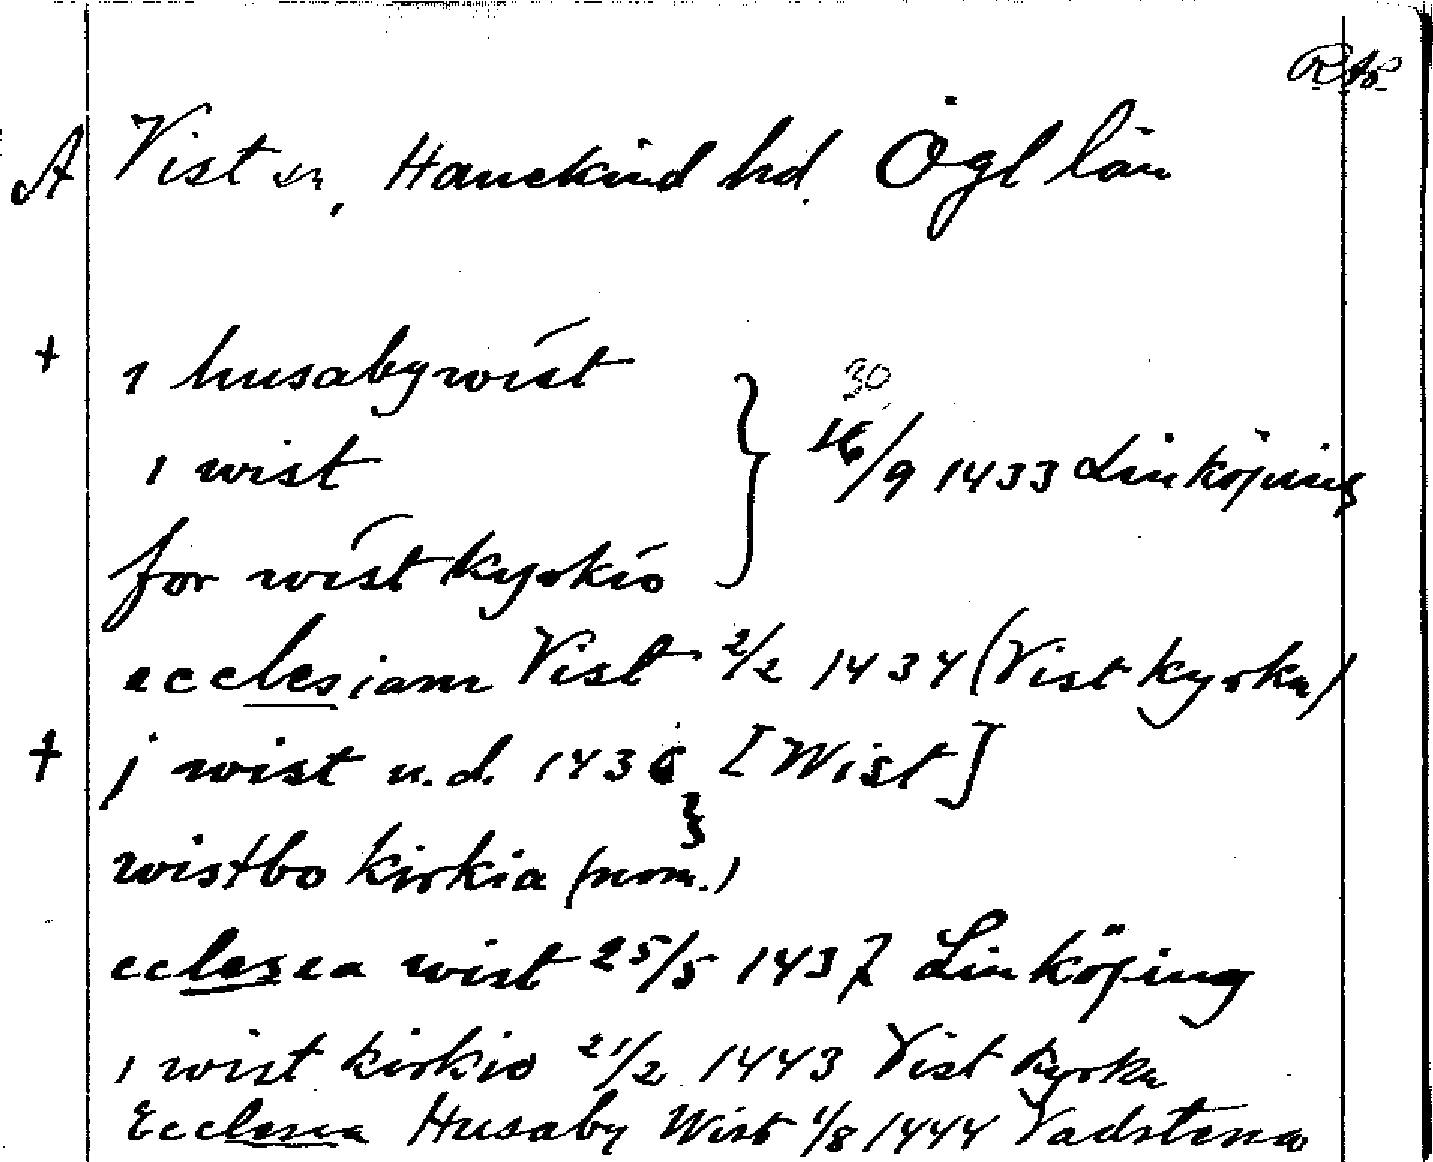 RAP
A Vist sn, Hanekind hd. Ögl län
+ ı husabywíst
30
ı wist } 16/9 1433 Linköping
for wist kyrkio
ecclesiam Vist 2/2 1434 (Vist kyrka)
+ j wist u.d. 1436 [Wist]
wistbo kirkia (nom.) }
ecclesea wist 25/5 1437 Linköping
ı wist kirkio 21/2 1443 Vist kyrka
Ecclesia Husaby Wist 1/8 1444 Vadstena